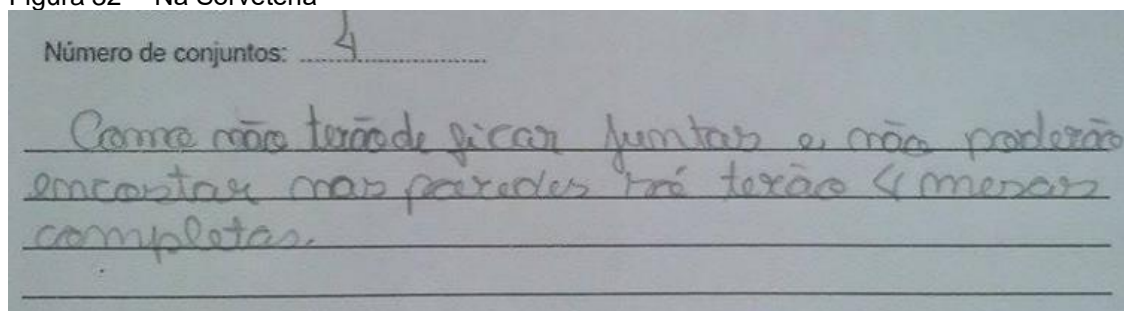 Figura 32 – Na Sorveteria
Número de conjuntos: 4
Como não terão de ficar juntas e não poderão
encostar nas paredes só terão 4 mesas
completas.